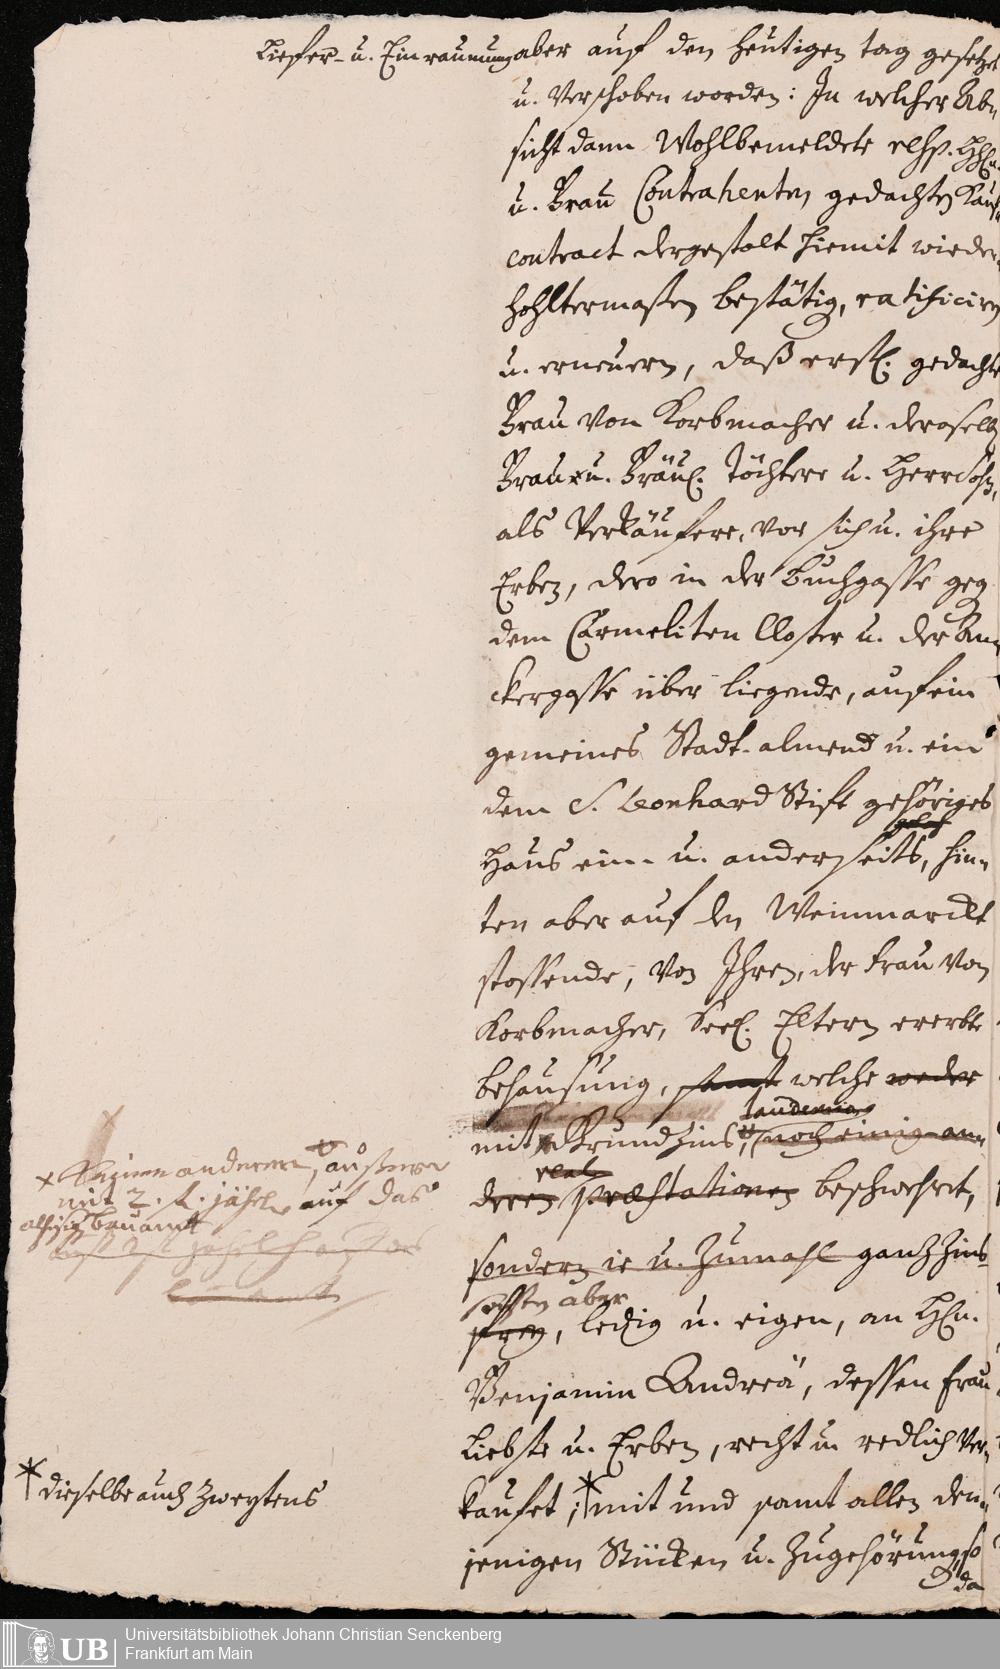 Liefer- u. Einraumung aber auf den heutigen tag gesetzet
u. Verschoben worden: In welcher Ab-
sicht dann Wohlbemeldete resp. HHn.
u. Frau Contrahenten gedachten Kauf-
contract dergestalt hiemit wieder-
hohltermaßen bestätig, ratificiren
u. erneuern, daß erstl. gedachte
Frau von Korbmacher u. deroselben
Frau u. Fräul. Töchtere u. Herr Sohn,
als Verkäufere, vor sich u. ihre
Erben, dero in der Buchgasse geg.
dem Carmeliten Closter u. der An-
ckergasse über liegende, auf ein
gemeines Stadt-almend u. ein
dem S. Leonhard Stift gehöriges
Haus ein- u. anderseits, hin-
ten aber auf den Weinmarckt
stossende, von Ihren, der Frau von
Korbmacher, Seel. Eltern ererbte
behausung, samt welche weder
laudemien
mit Grundzins, noch einig an-
real
deren præstationen beschwehret,
sondern ie u. Zumahl gantz Zins
aber
frey, ledig u. eigen, an Hn.
Benjamin Andreä, dessen Frau
Liebste u. Erben, recht u. redlich Ver-
kaufet, * mit und samt allen den-
jenigen Stücken u. Zugehörung, so
da
x keinem anderen, außer
mit 2. f. jährl. auf das
bauamt
* dieselbe auch Zweytens
UB
Universitätsbibliothek Johann Christian Senckenberg
Frankfurt am Main